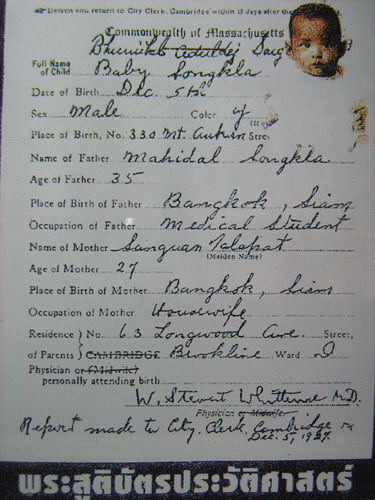 return to City Clerk, Cambridge within 15 days after the
Commonwealth of Massachusetts
Bhumikb Aduldej
Full Name of Child Baby Songkla
Date of Birth Dec. 5th
Sex Male Color y
Place of Birth, No. 330 Mt. Auburn Street
Name of Father Mahidal Songkla
Age of Father 35
Place of Birth of Father Bangkok, Siam
Occupation of Father Medical Student
Name of Mother Sanguan Talapat
(Maiden Name)
Age of Mother 27
Place of Birth of Mother Bangkok, Siam
Occupation of Mother Housewife
Residence of Parents No. 63 Longwood Ave. Street,
CAMBRIDGE Brookline Ward
Physician or (Midwife)
personally attending birth
W. Stewart Whittemore M.D.
Physician or Midwife
Report made to City Clerk, Cambridge
Dec. 5, 1927.
พระสูติบัตรประวัติศาสตร์